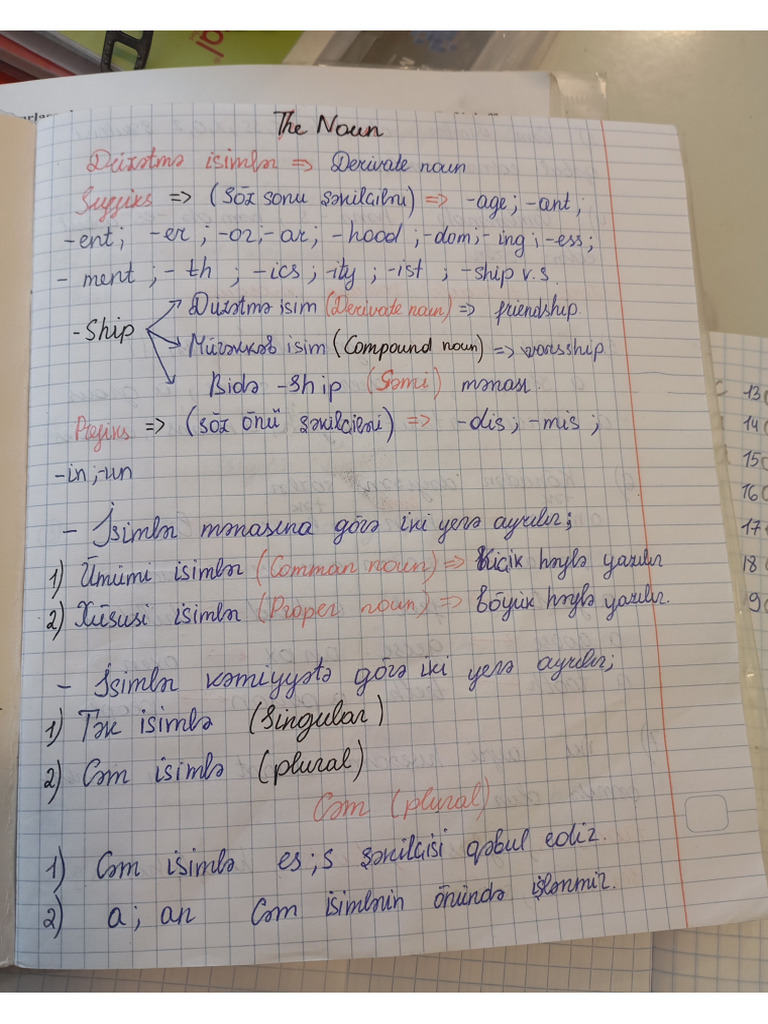 The Noun
Düzəltmə isimlər => Derivate noun
Suffiks => (Söz sonu şəkilçiləri) => -age; -ant;
-ent; -er; -or; -ar; -hood; -dom; -ing; -ess;
-ment; -th; -ics; -ity; -ist; -ship v.s.
-Ship
Düzəltmə isim (Derivate noun) => friendship
Mürəkkəb isim (Compound noun) =>
Bidə -Ship (Gəmi) mənası.
Prefiks => (söz önü şəkilçiləri) => -dis; -mis;
-in; -un
- İsimlər mənasına görə iki yerə ayrılır;
1) Ümümi isimlər (Comman noun) => kiçik hərflə yazılır
2) Xüsusi isimlər (Proper noun) => Böyük hərflə yazılır.
- İsimlər kəmiyyətə görə iki yerə ayrılır;
1) Tək isimlə (Singular)
2) Cəm isimlə (plural)
Cəm (plural)
1) Cəm isimlə es; s şəkilçisi qəbul edir.
2) a; an Cəm isimlərin önündə işlənmir.
13
14
15
16
17
18